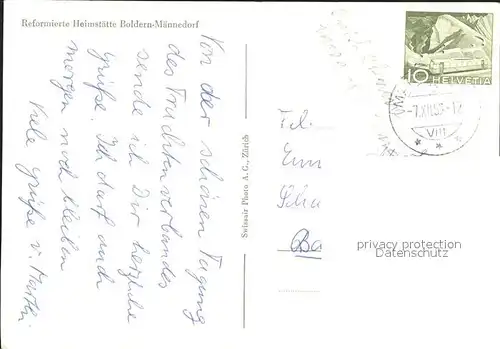 Reformierte Heimstätte Boldern-Männedorf
Von der schönen Tagung
des Trachtenverbandes
sende ich Dir herzliche
Grüße. Ich darf auch
morgen noch bleiben
Viele Grüße v. Martin
Swissair Photo A. G., Zürich
10 HELVETIA
VIII
Ba
privacy protection
Datenschutz